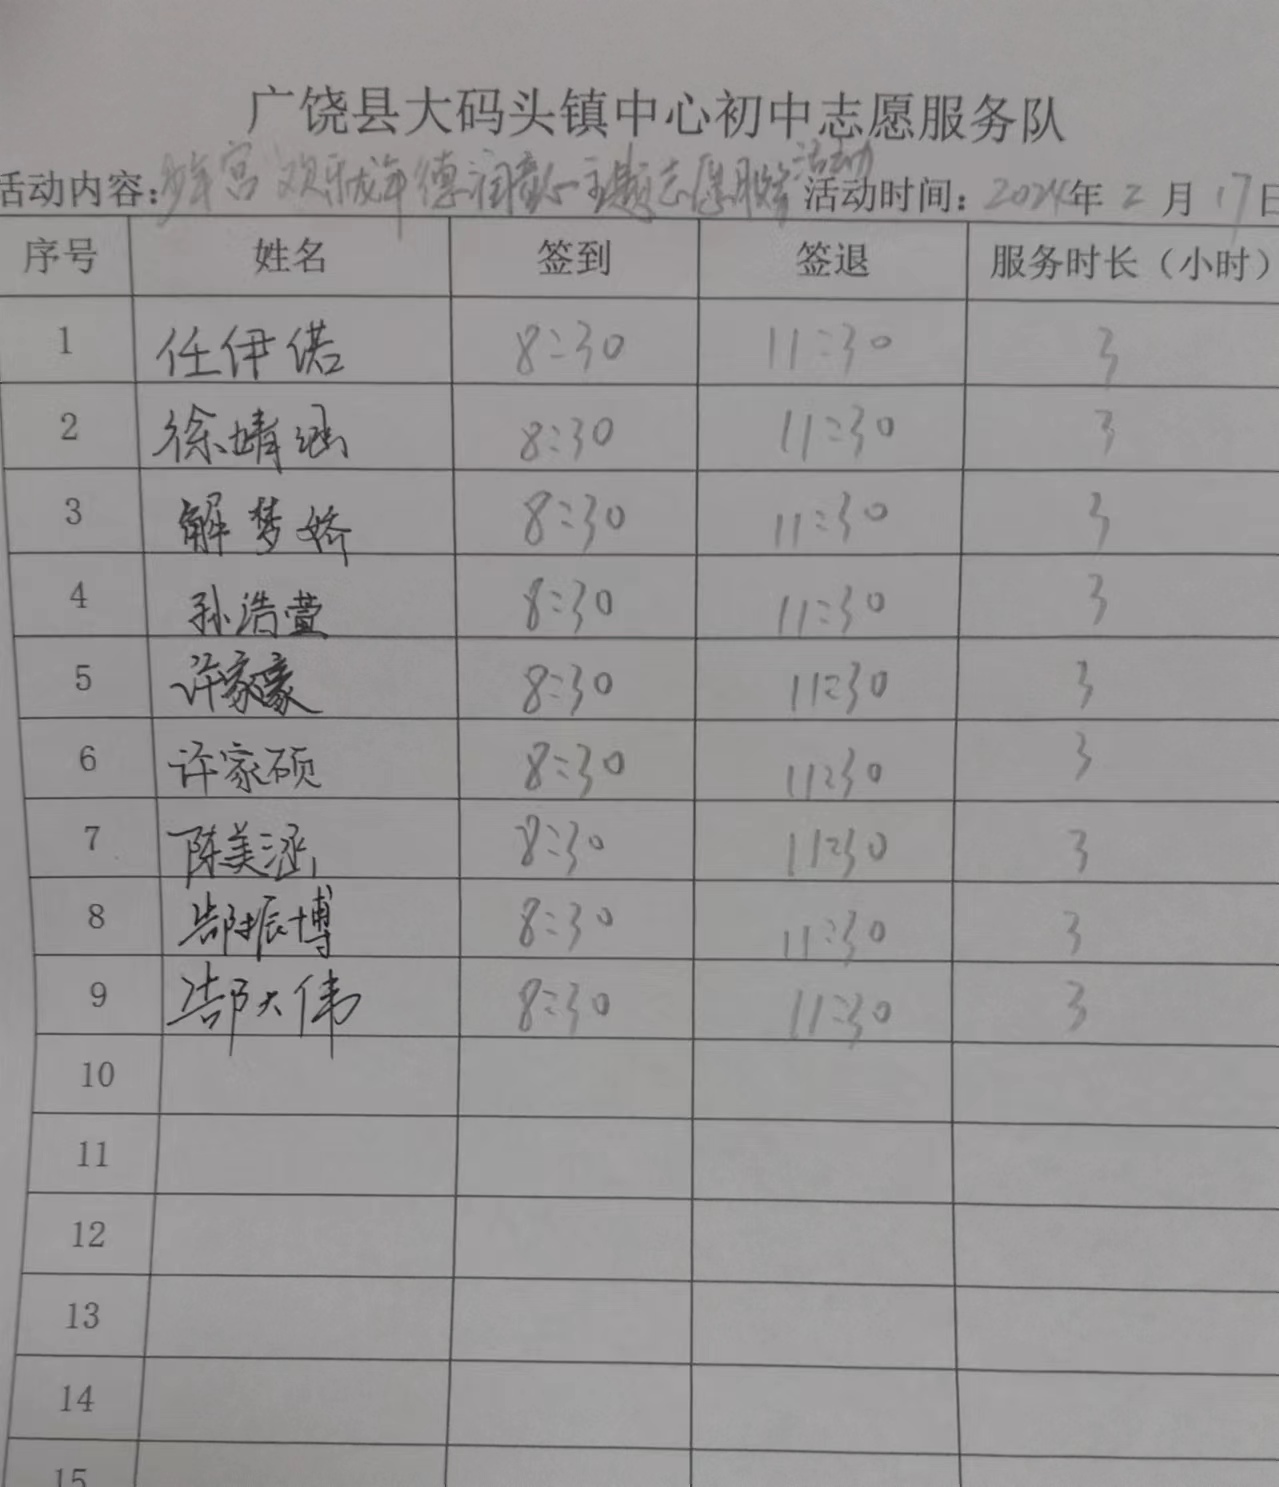 广饶县大码头镇中心初中志愿服务队
活动内容:少年宫 欢乐成年 德润童心 主题志愿服务活动 活动时间:2024年2月17日
序号 姓名 签到 签退 服务时长(小时)
1 任伊偌 8:30 11:30 3
2 徐婧涵 8:30 11:30 3
3 解梦娇 8:30 11:30 3
4 孙浩萱 8:30 11:30 3
5 许家豪 8:30 11:30 3
6 许家硕 8:30 11:30 3
7 陈美涵 8:30 11:30 3
8 郜振博 8:30 11:30 3
9 郜大伟 8:30 11:30 3
10
11
12
13
14
15